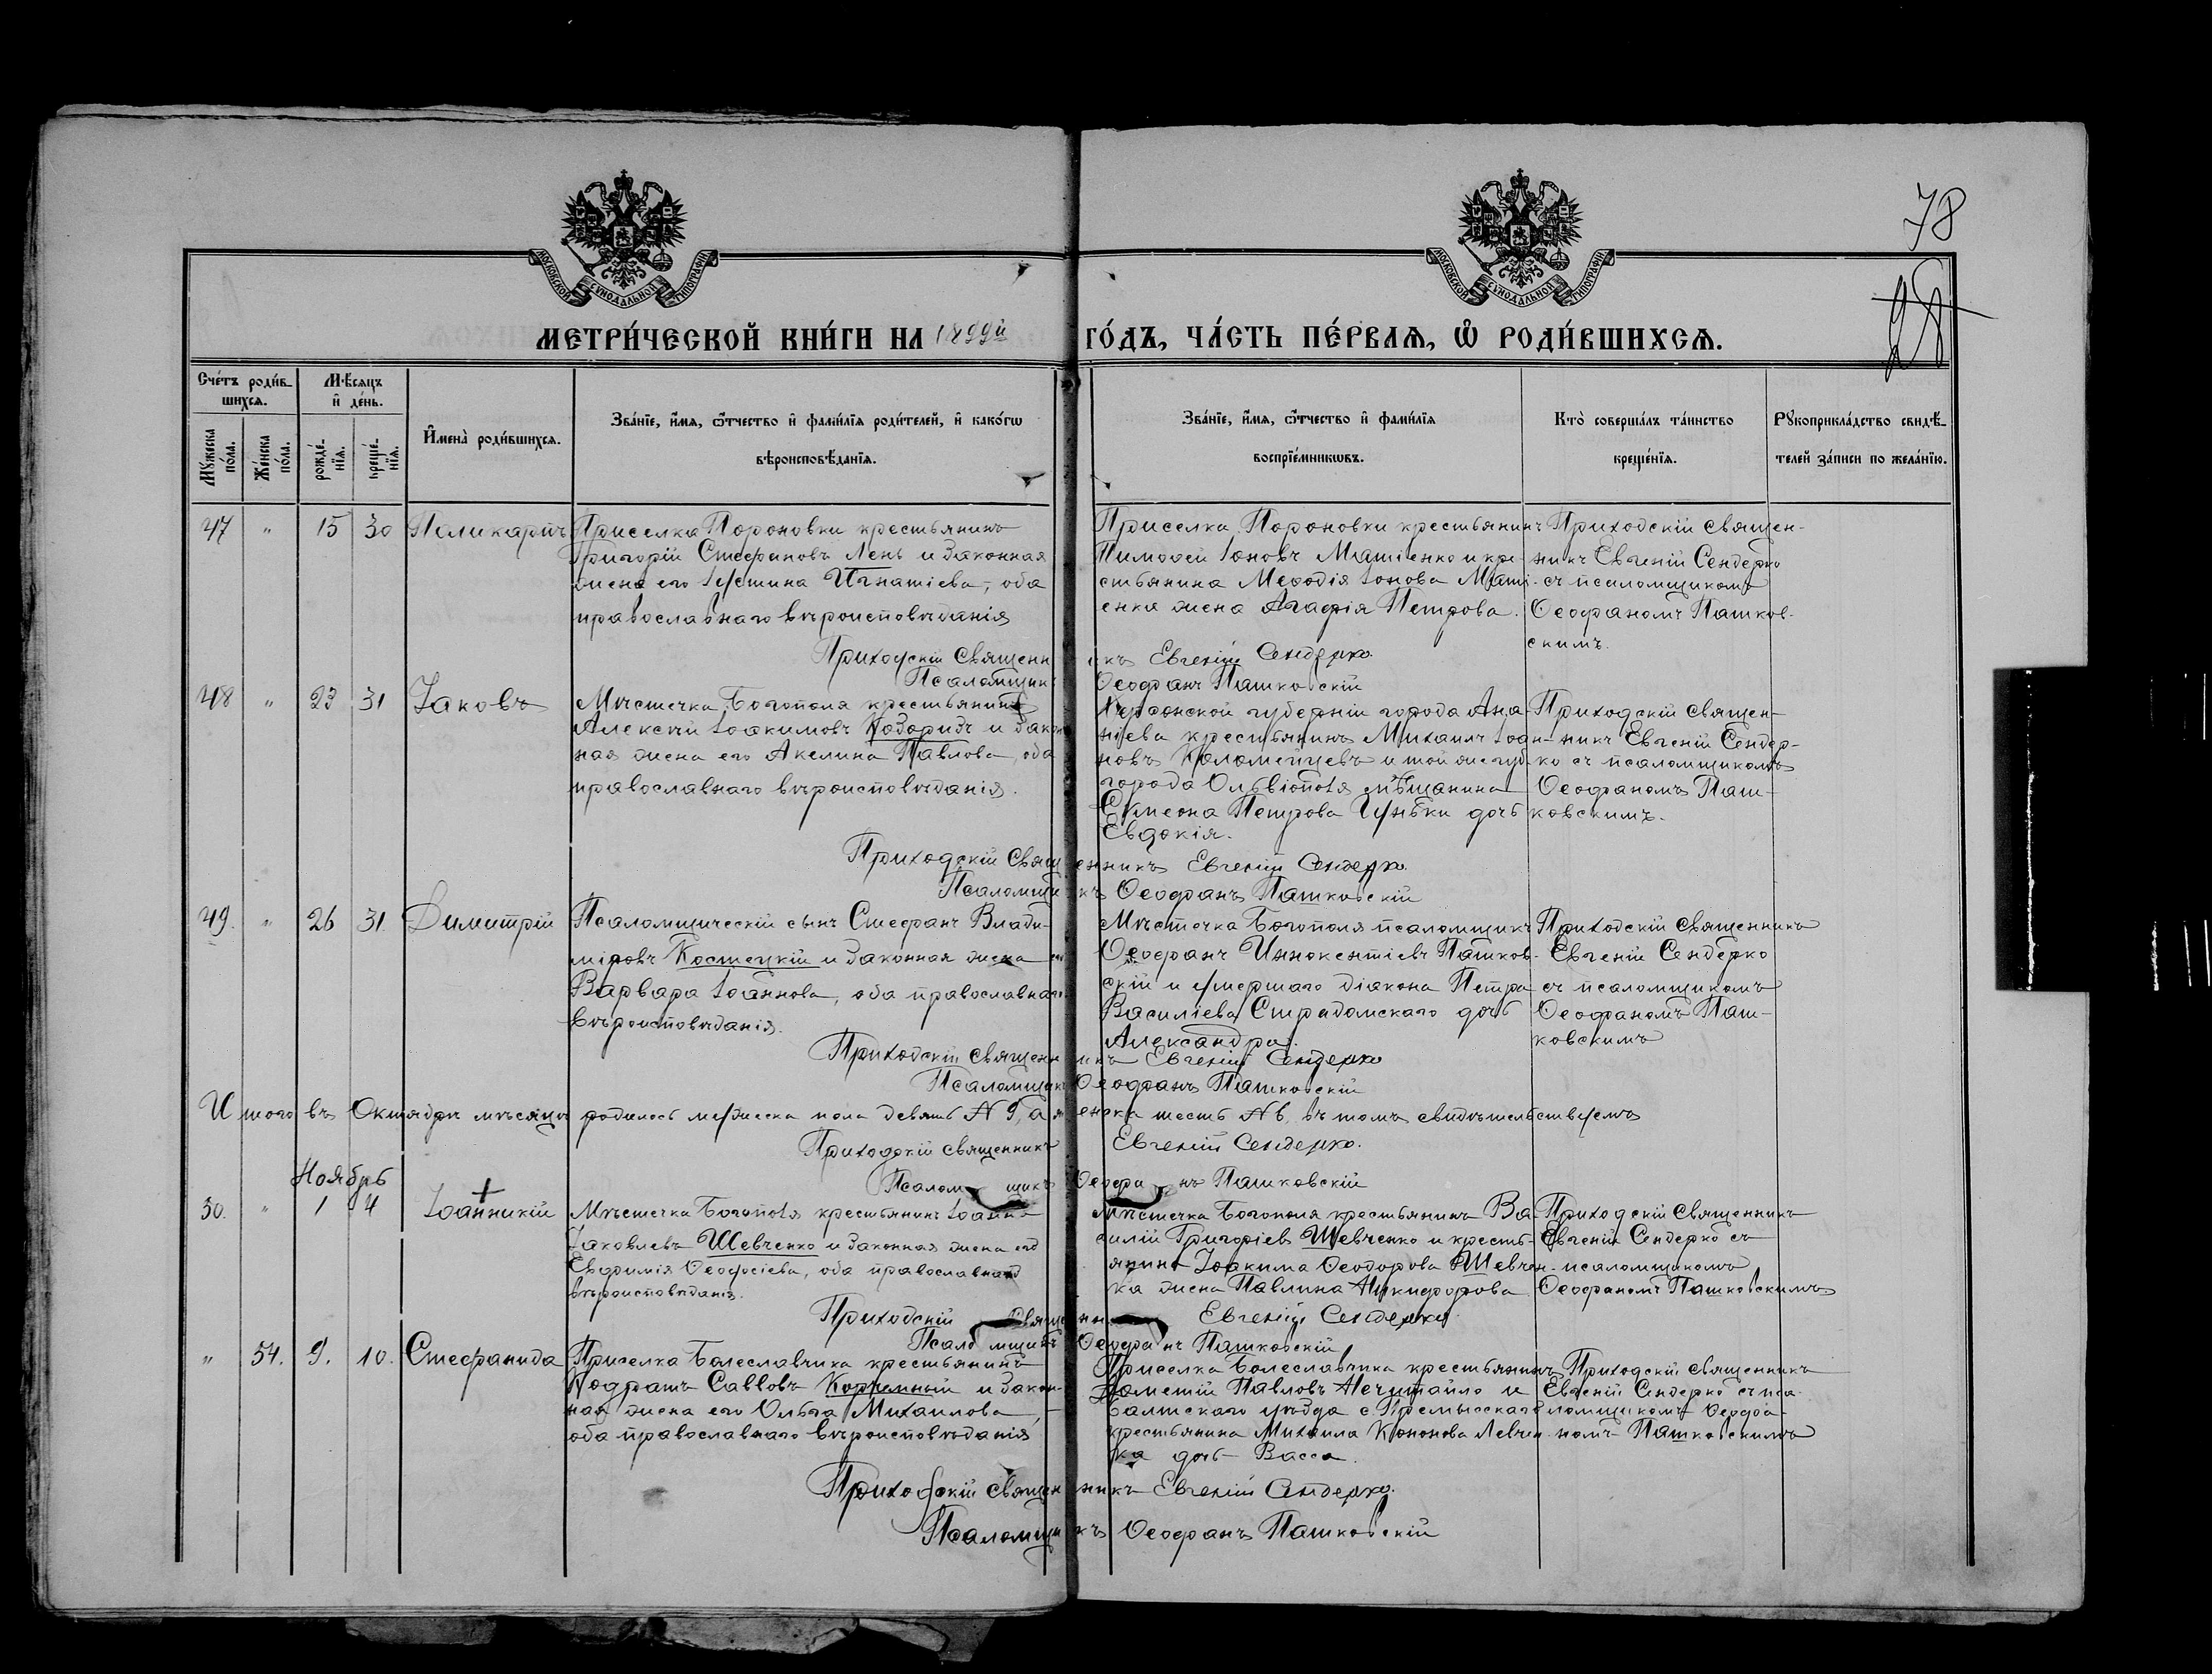 78
МОСКОВСКОЙ СУНОДАЛЬНОЙ ТИПОГРАФІИ
МОСКОВСКОЙ СУНОДАЛЬНОЙ ТИПОГРАФІИ
МЕТРИ́ЧЕСКОЙ КНИ́ГИ НА 1899й ГО́ДЪ, ЧА́СТЬ ПЕ́РВАѦ, Ѡ҆ РОДИ́ВШИХСѦ.
Сче́тъ роди́в-
шихсѧ.
Мѣ́сѧцъ
и҆ де́нь.
Мꙋ́жеска по́ла.
Же́нска по́ла.
рожде́-
нїѧ.
креще́-
нїѧ.
И҆мена̀ роди́вшихсѧ.
Зва́нїе, и҆́мѧ, ѻ҆́тчество и҆ фами́лїѧ роди́телей, и҆ како́гѡ
вѣроисповѣ́данїѧ.
Зва́нїе, и҆́мѧ, ѻ҆́тчество и҆ фами́лїѧ
воспрїе́мникѡвъ.
Кто̀ соверша́лъ та́инство
креще́нїѧ.
Рꙋкоприкла́дство свидѣ́-
телей за́писи по жела́нїю.
47 " 15 30 Паликарпъ
Приселка Пороновки крестьянинъ
Григорій Стефановъ Лень и законная
жена его Іустина Игнатіева, оба
православнаго вѣроисповѣданія
Приселка Пороновки крестьянинъ
Тимофей Іоновъ Матіенко и кре-
стьянина Меѳодія Іонова Маті-
енка жена Агафія Петрова.
Приходскій Священ-
никъ Евгеній Сендерко
съ псаломщикомъ
Ѳеофаномъ Пашков-
скимъ.
Приходскій Священникъ Евгеній Сендерко.
Псаломщикъ Ѳеофанъ Пашковскій
48 " 23 31 Іаковъ
Мѣстечка Богополя крестьянинъ
Алексѣй Іоакимовъ Кодоридъ и закон
ная жена его Акелина Павлова, оба
православнаго вѣроисповѣданія.
Херсонской губерніи города Ана-
ніева крестьянинъ Михаилъ Іоан-
новъ Коломейцевъ и той же губ.
города Ольвіополя мѣщанина
Симеона Петрова Цунѣки дочь
Евдокія.
Приходскій Священ-
никъ Евгеній Сендер-
ко съ псаломщикомъ
Ѳеофаномъ Паш-
ковскимъ.
Приходскій Священникъ Евгеній Сендерко.
Псаломщикъ Ѳеофанъ Пашковскій
49. " 26 31 Димитрій
Псаломщическій сынъ Стефанъ Влади-
міровъ Костецкій и законная жена его
Варвара Іоаннова, оба православнаго
вѣроисповѣданія.
Мѣстечка Богополя псаломщикъ
Ѳеофанъ Иннокентіевъ Пашков-
скій и умершаго діакона Петра
Василіева Страдомскаго дочь
Александра.
Приходскій Священникъ
Евгеній Сендерко
съ псаломщикомъ
Ѳеофаномъ Паш-
ковскимъ
Приходскій Священникъ Евгеній Сендерко
Псаломщикъ Ѳеофанъ Пашковскій
Итого въ Октябрѣ мѣсяцѣ родилось мужеска пола девять № 9, а женска шесть № 6. въ томъ свидѣтельствуемъ
Приходскій священникъ Евгеній Сендерко.
Псаломщикъ Ѳеофанъ Пашковскій
Ноябрь
50. " 1 4 Іоанникій
Мѣстечка Богополя крестьянинъ Іоаннъ
Іаковлевъ Шевченко и законная жена его
Евфимія Ѳеодосіева, оба православнаго
вѣроисповѣданія.
Мѣстечка Богополя крестьянинъ Ва-
силій Григоріев Шевченко и кресть-
янина Іоакима Ѳеодорова Шевчен-
ка жена Павлина Никифорова
Приходскій Священникъ
Евгеній Сендерко съ
псаломщикомъ
Ѳеофаномъ Пашковскимъ
Приходскій Священникъ Евгеній Сендерко
Псаломщикъ Ѳеофанъ Пашковскій
" 54. 9. 10. Стефанида
Приселка Болеславчика крестьянинъ
Кодратъ Савловъ Корчемный и закон-
ная жена его Ольга Михаилова,
оба православнаго вѣроисповѣданія
Приселка Болеславчика крестьянинъ
Дометій Павловъ Нечитайло и
Балтскаго уѣзда с.
крестьянина Михаила Кононова Левчен
ка дочь Васса.
Приходскій Священникъ
Евгеній Сендерко съ пса-
ломщикомъ Ѳеофа-
номъ Пашковскимъ
Приходскій Священникъ Евгеній Сендерко.
Псаломщикъ Ѳеофанъ Пашковскій